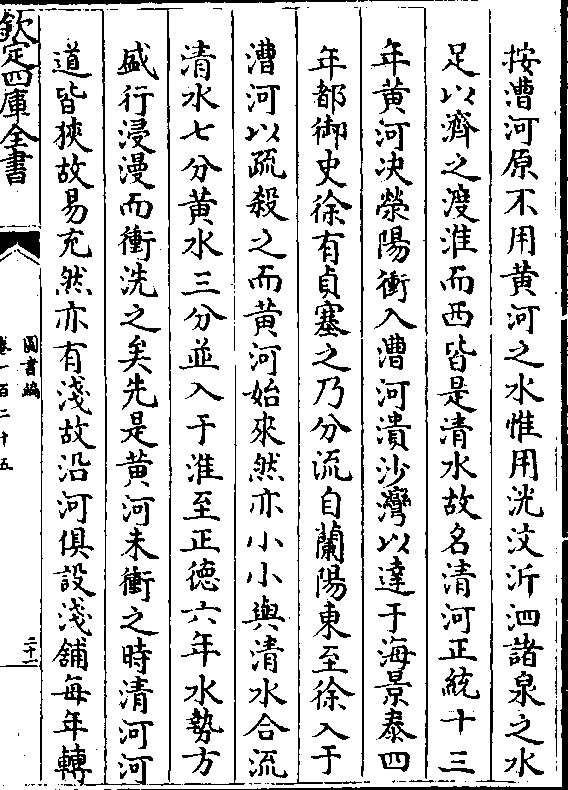 按漕河原不用黄河之水惟用洸汶沂泗諸泉之水
足以濟之渡淮而西皆是清水故名清河正統十三
年黄河决滎陽衝入漕河潰沙灣以達于海景泰四
年都御史徐有貞塞之乃分流自蘭陽東至徐入于
漕河以疏殺之而黄河始來然亦小小與清水合流
清水七分黄水三分並入于淮至正德六年水勢方
盛行浸漫而衝洗之矣先是黄河未衝之時清河河
道皆狹故易充然亦有淺故沿河俱設淺舖每年轉
欽定四庫全書
圖書編
卷一百二十五
二十一